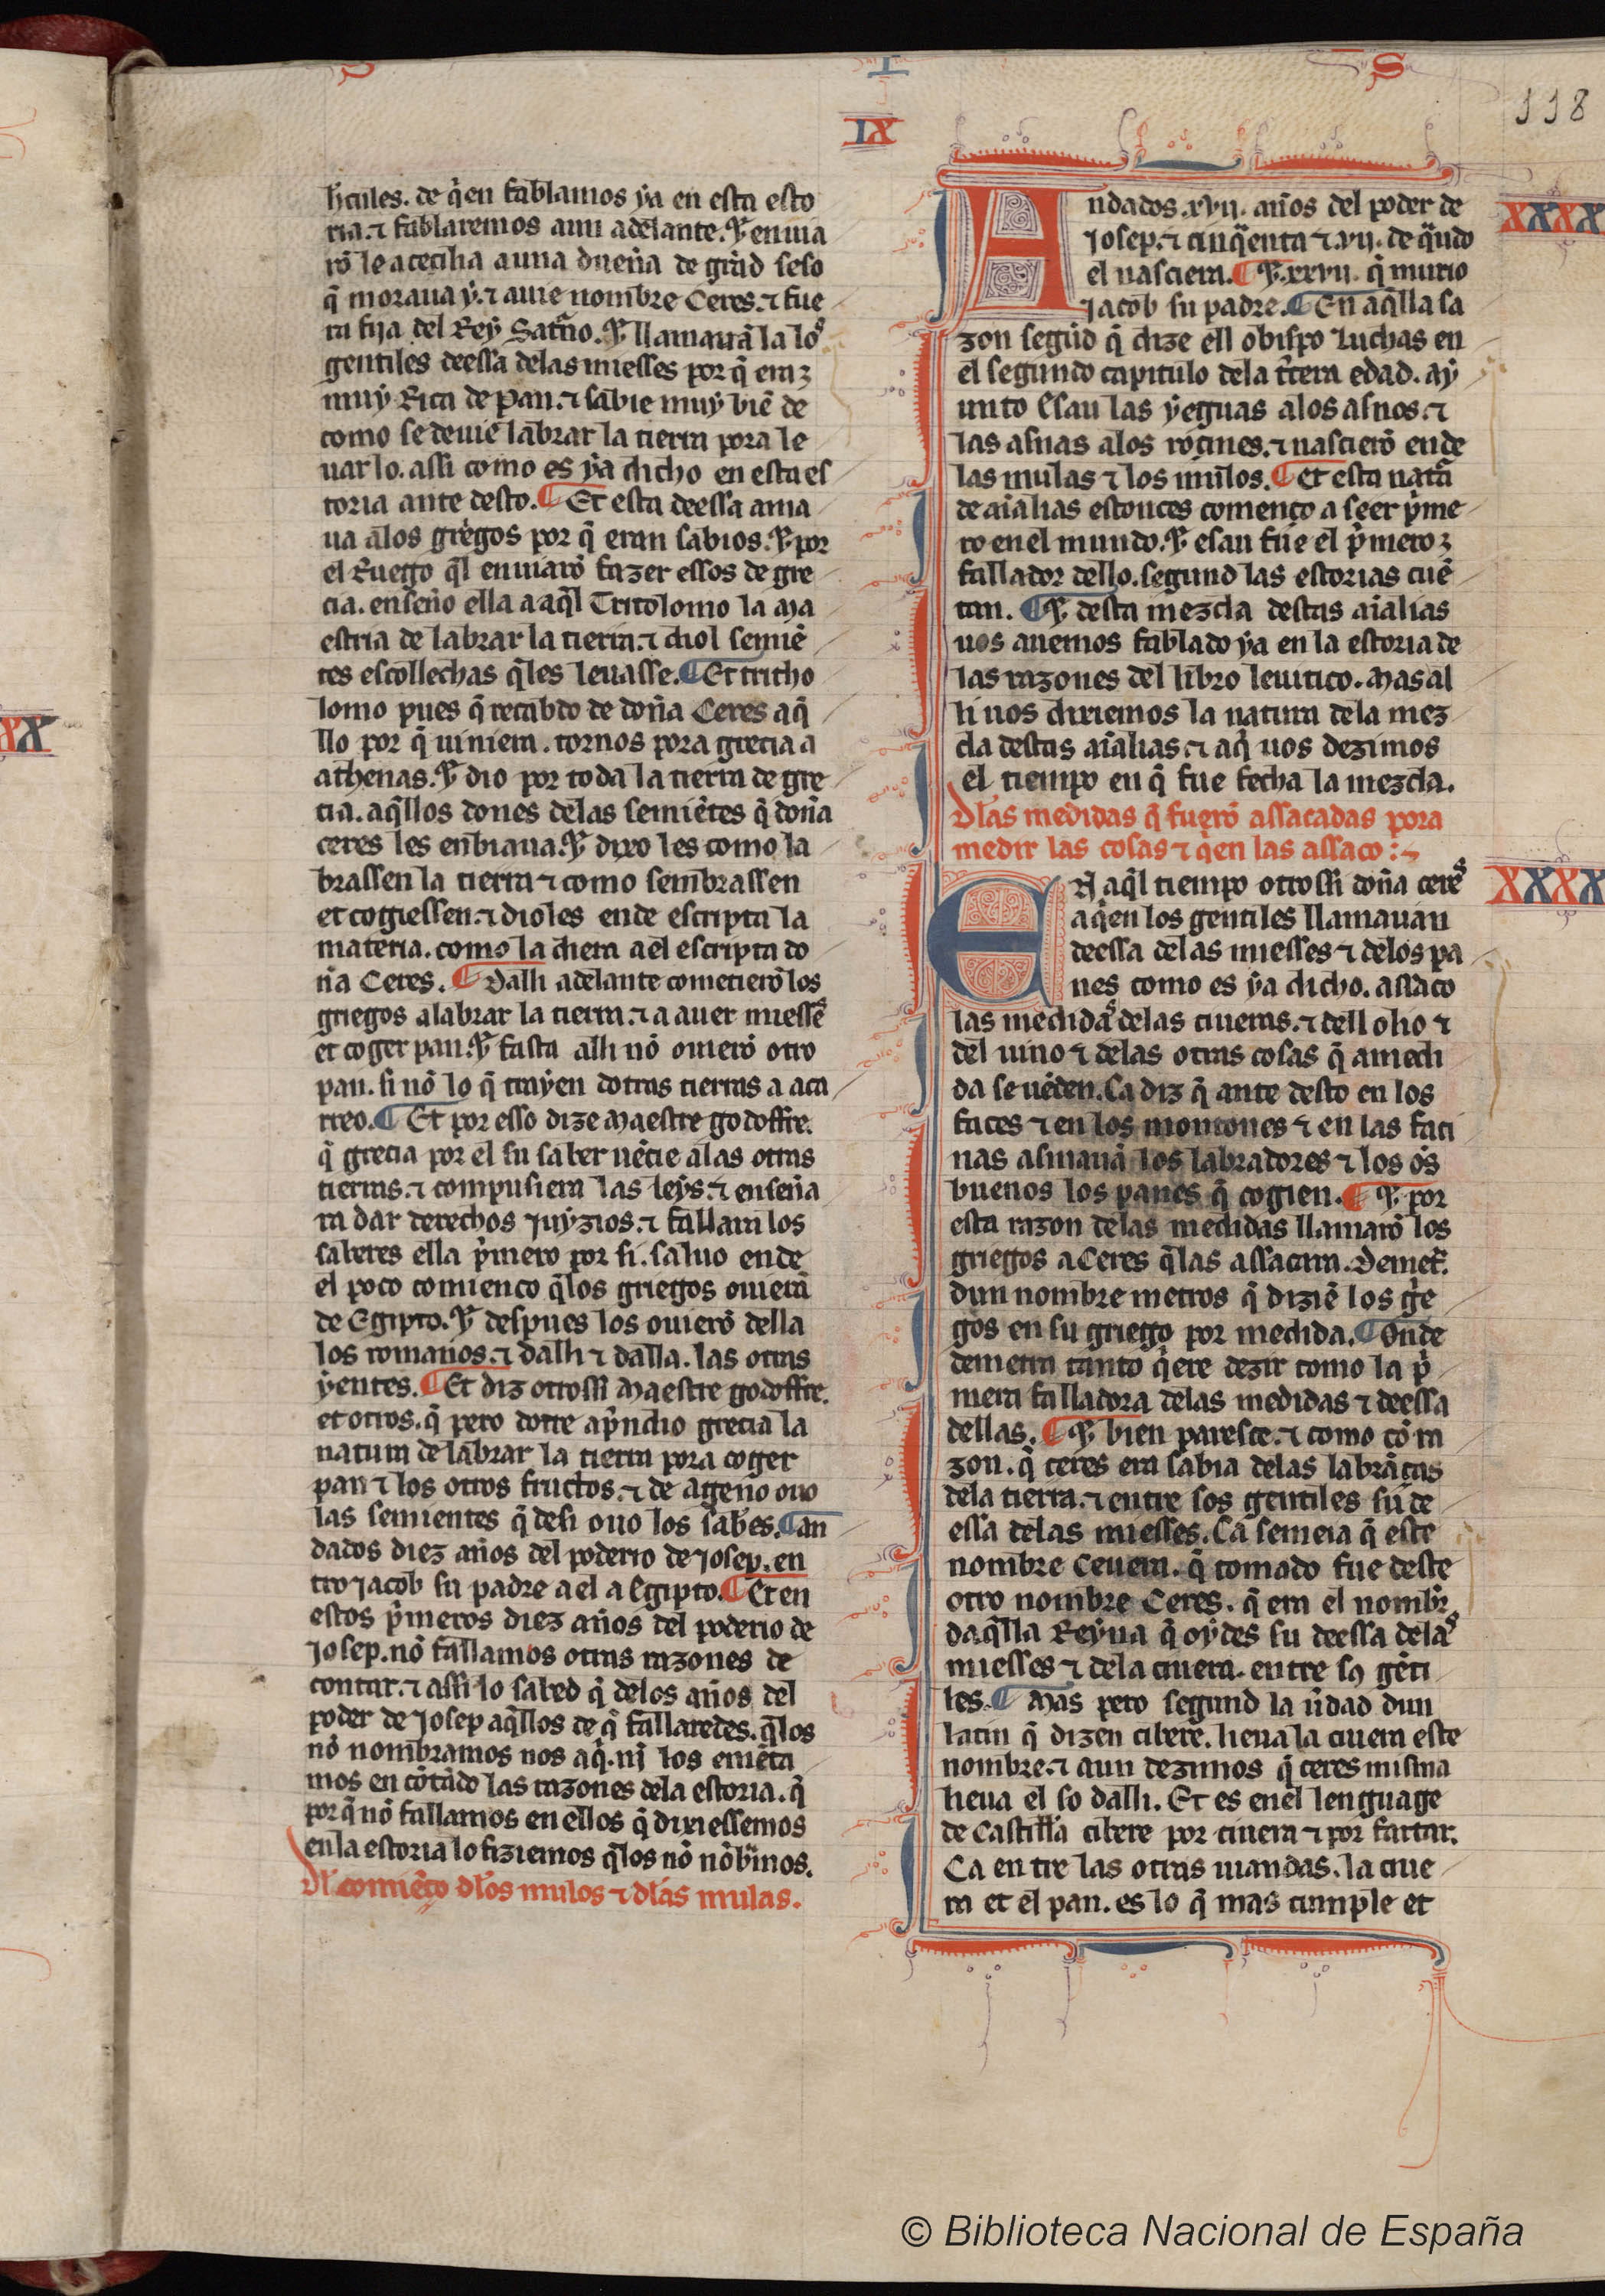 S I S
118
IX
h̃cules. de q̃en fablamos ya en esta esto
ria. ⁊ fablaremos aun adelante. ⁊ enuia
rõ le a cecilia a una dueña de grãd seso
q̃ moraua y. ⁊ auie nombre Ceres. ⁊ fue
ra fija del Rey Satñno. ⁊ llamauã la los
gentiles deessa delas miesses por q̃ era
muy Rica de pan. ⁊ sabie muy biẽ de
como se deuie labrar la tierra pora le
uar lo. assi como es ya dicho en esta es
toria ante desto. ¶ Et esta deessa ama
ua alos griegos por q̃ eran sabios. ⁊ por
el Ruego q̃l enuiarõ fazer essos de gre
cia. enseño ella a aq̃l Tritolomo la ma
estria de labrar la tierra. ⁊ diol semiẽ
tes escollechas q̃les leuasse. ¶ Et tritho
lomo pues q̃ recabdo de doña Ceres aq̃
llo por q̃ uiniera. tornos pora grecia a
athenas. ⁊ dio por toda la tierra de gre
cia. aq̃llos dones delas semiẽtes q̃ doña
ceres les enbiaua. ⁊ dixo les como la
brassen la tierra ⁊ como sembrassen
et cogiessen. ⁊ dioles ende escripta la
materia. como la diera a el escripta do
ña Ceres. ¶ Dalli adelante cometierõ los
griegos a labrar la tierra. ⁊ a auer miesses
et coger pan. ⁊ fasta alli nõ ouierõ otro
pan. si nõ lo q̃ trayen dotras tierras a aca
rreo. ¶ Et por esso dize maestre godoffre.
q̃ grecia por el su saber uẽcie alas otras
tierras. ⁊ compusiera las leys. ⁊ enseña
ra dar derechos juyzios. ⁊ fallara los
saberes ella p̃mero por si. saluo ende
el poco comienço q̃ los griegos ouierã
de Egipto. ⁊ despues los ouierõ della
los romanos. ⁊ dalli ⁊ dalla. las otras
yentes. ¶ Et diz otrossi maestre godoffre.
et otros. q̃ pero dotre ap̃ndio grecia la
natura de labrar la tierra pora coger
pan ⁊ los otros fructos. ⁊ de ageno ouo
las semientes q̃ desi ouo los sab̃es. ¶ an
dados diez años del poderio de Josep. en
tro Jacob su padre a el a Egipto. ¶ Et en
estos p̃meros diez años del poderio de
Josep. nõ fallamos otras razones de
contar. ⁊ assi lo sabed q̃ delos años del
poder de Josep aq̃llos de q̃ fallaredes. q̃los
nõ nombramos nos aq̃. nj los emẽta
mos en cõtãdo las razones dela estoria. q̃
por q̃ nõ fallamos en ellos q̃ dixiessemos
en la estoria lo fiziemos q̃los nõ nõbr̃mos.
Dl comiẽço dlos mulos ⁊ dlas mulas.
Andados .xvij. años del poder de
Josep. ⁊ cinq̃enta ⁊ .vij. de q̃ndo
el nasciera. ¶ ⁊ .xxvij. q̃ murio
Jacob su padre. ¶ En aq̃lla sa
zon segũd q̃ dize ell obispo Luchas en
el segundo capitulo dela t̃cera edad. ay
unto Esau las yeguas a los asnos. ⁊
las asnas alos rocines. ⁊ nascierõ ende
las mulas ⁊ los mulos. ¶ Et esta natã
de aĩalias estonces començo a seer p̃me
ro en el mundo. ⁊ esau fue el p̃mero
fallador dello. segund las estorias cuẽ
tan. ¶ ⁊ desta mezcla destas aĩalias
uos auemos fablado ya en la estoria de
las razones del libro leuitico. mas al
li uos dixiemos la natura dela mez
cla destas aĩalias. ⁊ aq̃ uos dezimos
el tiempo en q̃ fue fecha la mezcla.
Dlas medidas q̃ fuerõ assacadas pora
medir las cosas ⁊ q̃en las assaco :~
XXXX
XXXX
XX
EN aq̃l tiempo otrossi doña ceres
a q̃en los gentiles llamauan
deessa delas miesses ⁊ delos pa
nes como es ya dicho. assaco
las medidas delas ciueras. ⁊ dell olio ⁊
del uino ⁊ delas otras cosas q̃ a medi
da se uẽden. Ca diz q̃ ante desto en los
faces ⁊ en los montones ⁊ en las faci
nas asmauã los labradores ⁊ los oẽs
buenos los panes q̃ cogien. ¶ ⁊ por
esta razon delas medidas llamarõ los
griegos a Ceres q̃ las assacara. Demet̃.
dun nombre metros q̃ diziẽ los g̃e
gos en su griego por medida. ¶ Onde
demetra tanto q̃ere dezir como la p̃
mera falladora delas medidas ⁊ deessa
dellas. ¶ ⁊ bien paresce. ⁊ como cõ ra
zon. q̃ ceres era sabia delas labrãças
dela tierra. ⁊ entre sos gentiles su de
essa delas miesses. Ca semeia q̃ este
nombre Ceuera. q̃ tomado fue deste
otro nombre Ceres. q̃ era el nombr̃
daq̃lla Reyna q̃ oydes su deessa delas
miesses ⁊ dela ciuera. entre sos gẽti
les. ¶ Mas pero segund la ũdad dun
latin q̃ dizen cibere. lieua la ciuera este
nombre. ⁊ aun dezimos q̃ ceres misma
lieua el so dalli. Et es en el lenguage
de Castilla cibere por ciuera ⁊ por fartar.
Ca entre las otras uiandas. la ciue
ra et el pan. es lo q̃ mas cumple et
© Biblioteca Nacional de España